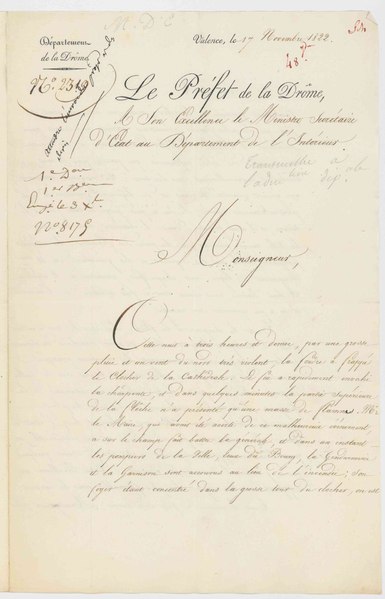 M. D. E
Département
de la Drôme
Valence, le 17 Novembre 1822.
48
Le Préfet de la Drôme,
A Son Excellence le Ministre Secrétaire
d'Etat au Département de l'Intérieur.
Transmettre à
1e Don
1er Beau
No 8175
Monseigneur,
Cette nuit à trois heures et demie, par une grosse
pluie et un vent du nord très violent, la foudre a frappé
le Clocher de la Cathédrale. Le feu a rapidement envahi
la charpente, et dans quelques minutes la partie supérieure
de la flèche n'a présenté qu'une masse de flamme. Mr.
le Maire, qui m'a averti de ce malheureux événement
a sur le champ fait battre la générale, et dans un instant
les pompiers de la Ville, ceux du Bourg, la Gendarmerie
et la Garnison sont accourus au lieu de l'incendie; son
foyer étant concentré dans la grosse tour du clocher, on est